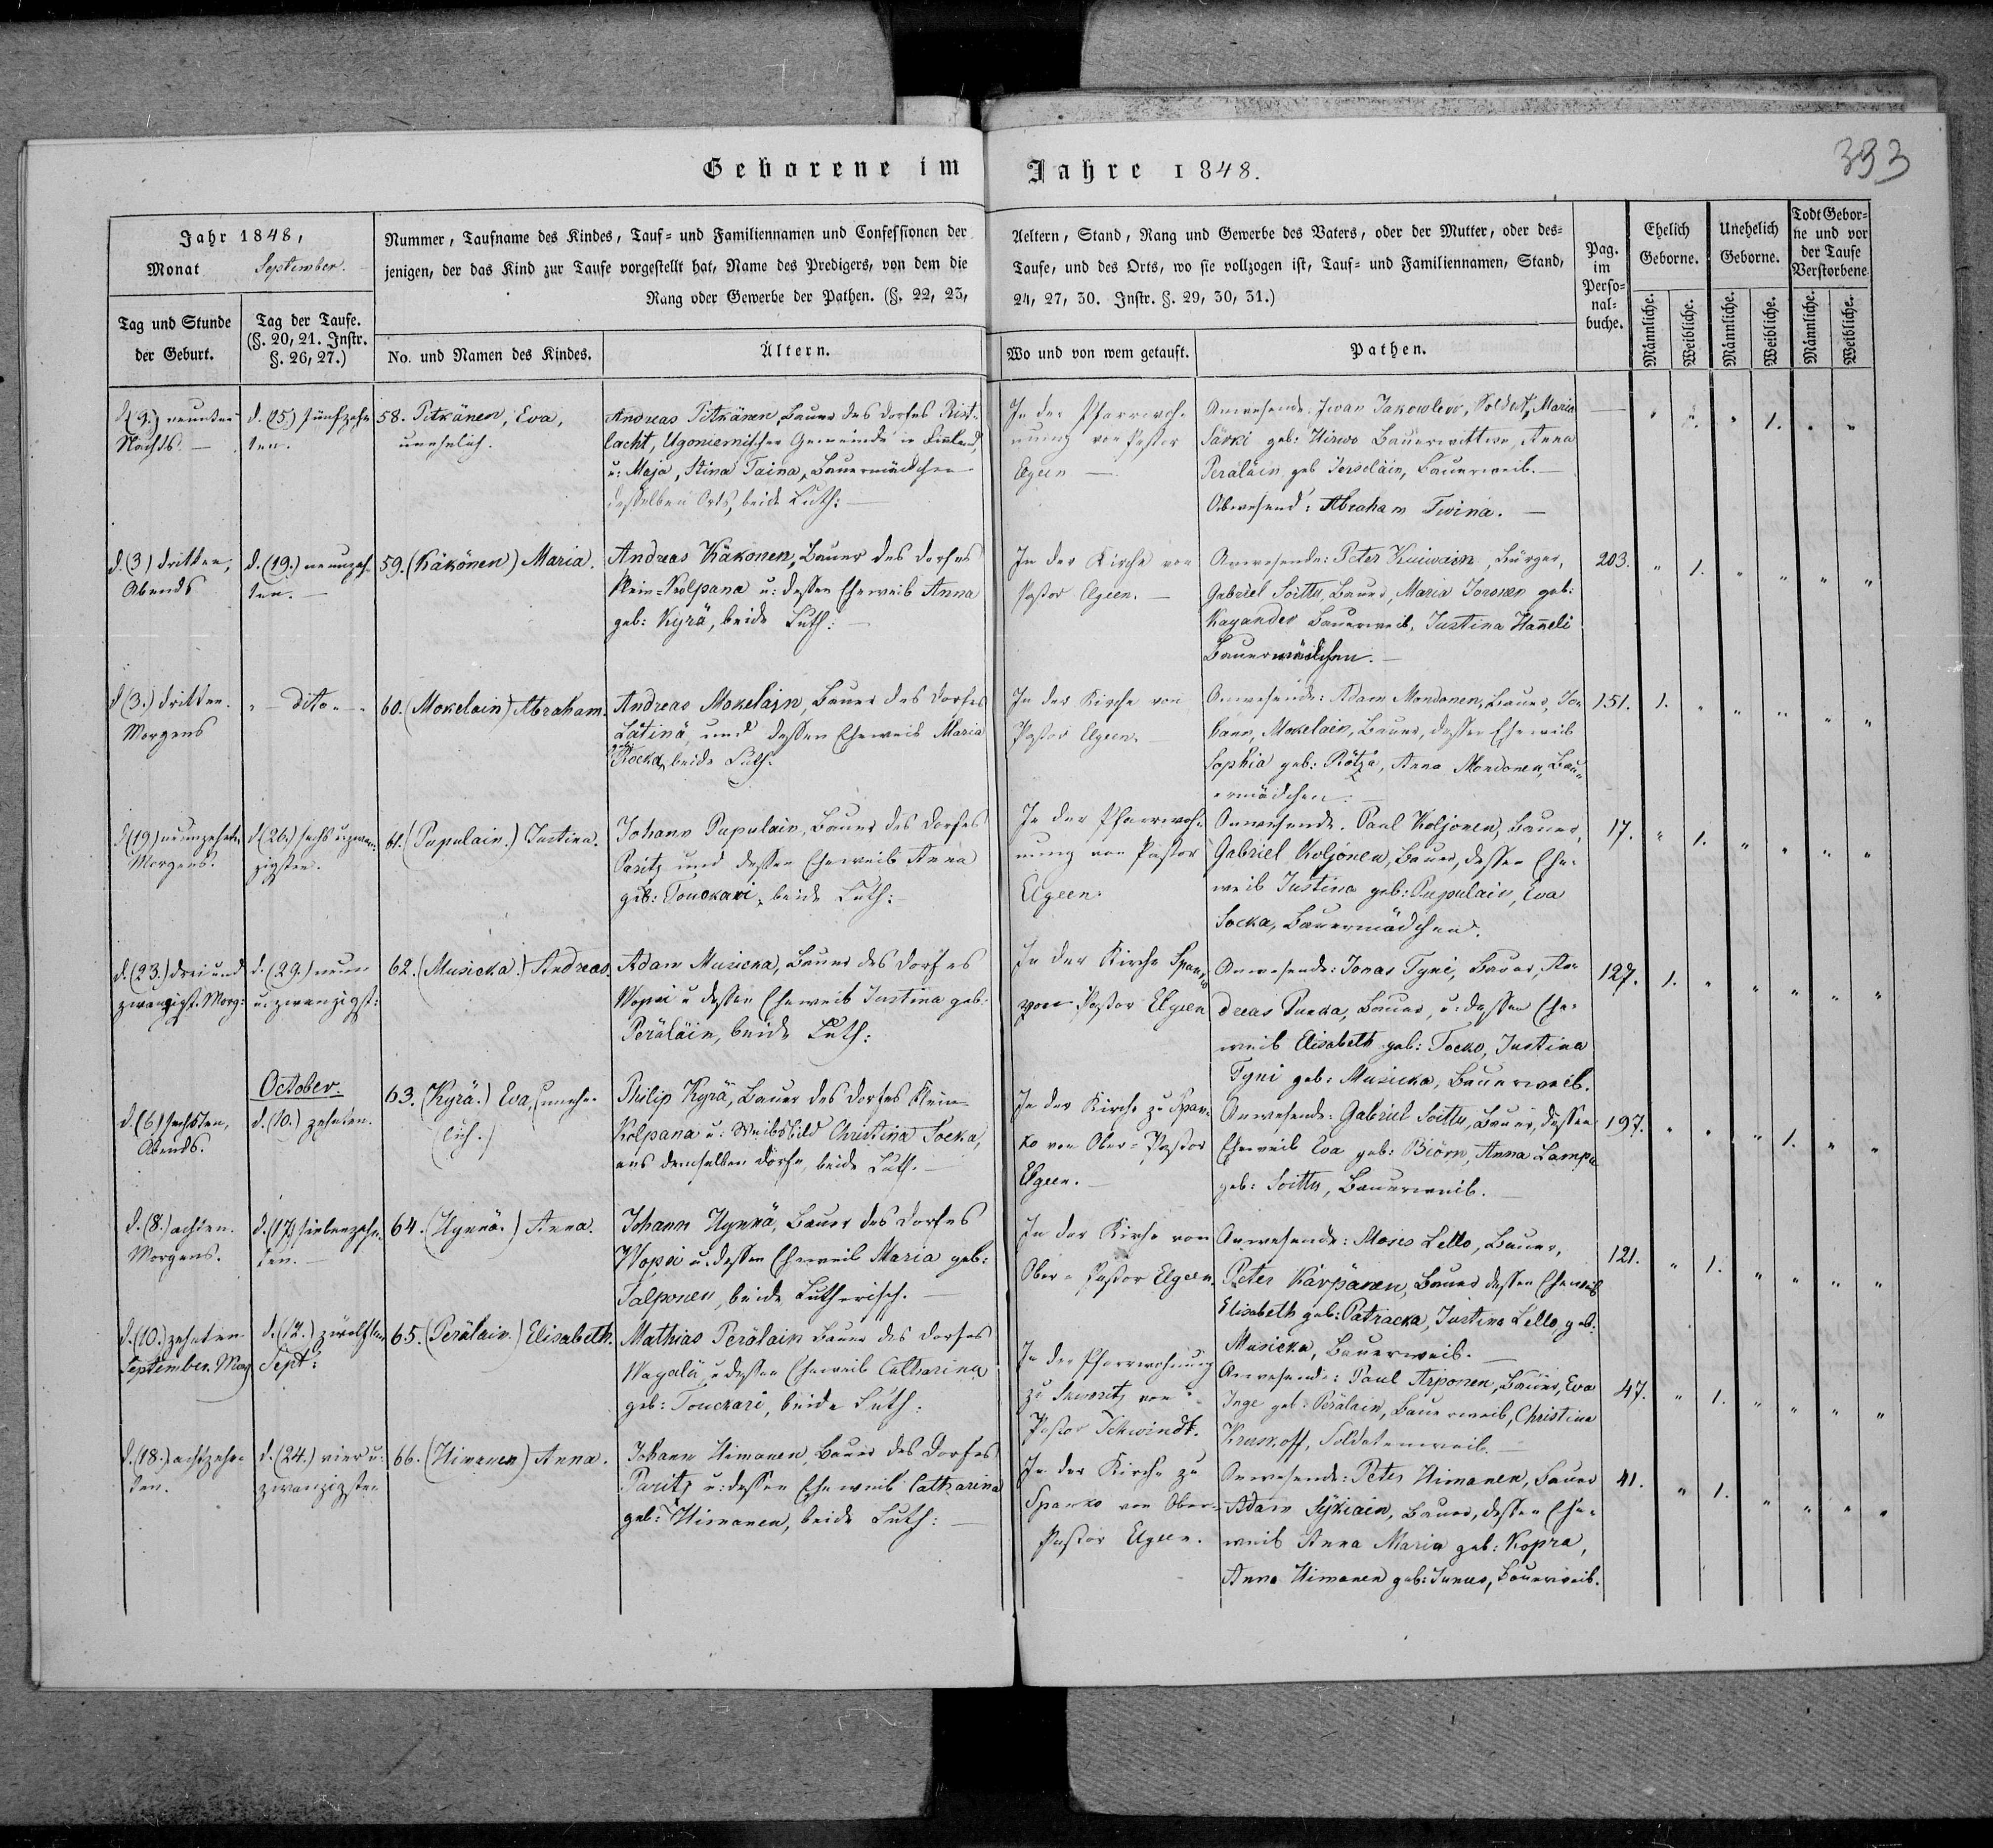 Geborene im Jahre 1848.
393
Jahr 1848,
Monat September.
Tag und Stunde der Geburt.
Tag der Taufe. (§. 20, 21. Instr. §. 26, 27.)
Nummer, Taufname des Kindes, Tauf- und Familiennamen und Confessionen der
jenigen, der das Kind zur Taufe vorgestellt hat, Name des Predigers, von dem die
Rang oder Gewerbe der Pathen. (§. 22, 23,
No. und Namen des Kindes.
Ältern.
Aeltern, Stand, Rang und Gewerbe des Vaters, oder der Mutter, oder des-
Taufe, und des Orts, wo sie vollzogen ist, Tauf- und Familiennamen, Stand,
24, 27, 30. Instr. §. 29, 30, 31.)
Wo und von wem getauft.
Pathen.
Pag. im Perso-nal-buche.
Ehelich Geborne.
Unehelich Geborne.
Todt Gebor-ne und vor der Taufe Verstorbene
Männliche.
Weibliche.
Männliche.
Weibliche.
Männliche.
Weibliche.
d. (9.) neunten
Nachts. —
d. (15) fünfzehn
ten.
58. Pitkänen, Eva,
unehelich.
Andreas Pitkänen, Bauer des Dorfes Rist-
lacht, Ugoniemischer Gemeinde in Finland,
u: Maja, Stina Taina, Bauermädchen
desselben Orts, beide Luth: —
In der Pfarrwoh-
nung von Pastor
Elgeen —
Anwesende: Iwan Jakowlew, Soldat, Maria
Särki geb: Hirwo Bauerwittwe, Anna
Peräläin, geb Terveläin, Bauerweib. —
Abwesend: Abraham Twina. —
1.
d. (3) dritten,
Abends
d. (19.) neunzeh
ten. —
59. (Käkönen) Maria.
Andreas Käkonen, Bauer des Dorfes
Klein-Kolpana u: dessen Eheweib Anna
geb: Kyrä, beide Luth: —
In der Kirche von
Pastor Elgeen. —
Anwesende: Peter Kuiwain, Bürger,
Gabriel Soittu, Bauer, Maria Toronen geb:
Kayander Bauerweib, Justina Hañeli
Bauermädchen. —
203. 1.
d (3.) dritten.
Morgens
" — dito " "
60. (Mokelain) Abraham.
Andreas Mokelain, Bauer des Dorfes
Lätinä, und dessen Eheweib Maria
geb: Rocka, beide Luth.
In der Kirche von
Pastor Elgeen. —
Anwesende: Adam Mondonen, Bauer, Jo-
hann, Mokelain, Bauer, dessen Eheweib
Sophia geb: Rötzä, Anna Mondonen, Bau-
ermädchen. —
151. 1.
d (19) neunzehnten
Morgens.
d (26.) sechs u: zwan-
zigsten.
61. (Pupulain.) Justina.
Johann Pupulain, Bauer des Dorfes
Paritz und dessen Eheweib Anna
geb: Touckari, beide Luth: —
In der Pfarrwoh-
nung von Pastor
Elgeen.
Anwesende. Paul Koljonen, Bauer,
Gabriel Koljonen, Bauer, dessen Ehe-
weib Justina geb: Pupulain, Eva
Socka, Bauermädchen.
17. 1.
d. (23.) drei und
zwanzigst. Morg:
d. (29.) neun
u: zwanzigst:
62. (Musicka.) Andreas
Adam Musicka, Bauer des Dorfes
Wopsi u dessen Eheweib Justina geb:
Peräläin, beide Luth:
In der Kirche Spanko
von Pastor Elgeen
Anwesende: Jonas Tyni, Bauer, An-
dreas Pukka, Bauer, u: dessen Ehe-
weib Elisabeth geb: Tocko, Justina
Tyni geb: Musicka, Bauerweib.
127. 1.
October.
d. (6) sechsten,
Abends.
d. (10.) zehnten.
63. (Kyrä.) Eva, (unehe-
lich.)
Philip Kyrä, Bauer des Dorfes Klein-
Kolpana u: Weibsbild Christina Socka,
aus demselben Dorfe, beide Luth. —
In der Kirche zu Span-
ko von Ober-Pastor
Elgeen. —
Anwesende: Gabriel Soittu, Bauer, dessen
Eheweib Eva geb: Biörn, Anna Lampa
geb: Soittu, Bauerweib. —
197. 1.
d. (8.) achten.
Morgens.
d. (17) siebenzehn-
ten. —
64. (Hynnä.) Anna.
Johann Hynnä, Bauer des Dorfes
Wopsi u: dessen Eheweib Maria geb:
Talponen, beide Lutherisch. —
In der Kirche von
Ober-Pastor Elgeen.
Anwesende: Moses Lello, Bauer,
Peter Kärpänen, Bauer dessen Eheweib
Elisabeth geb: Patracka, Justina Lello, geb:
Musicka, Bauerweib. —
121. 1.
d. (10.) zehnten
September. Morg
d. (12.) zwölften
Sept:
65. (Perälain.) Elisabeth.
Mathias Perälain Bauer des Dorfes
Wagalä, u dessen Eheweib Catharina
geb: Touckari, beide Luth:
In der Pfarrwohnung
zu Skworitz von
Pastor Schwindt.
Anwesende: Paul Arponen, Bauer, Eva
Inge geb: Perälain, Bauerweib, Christina
Kruskoff, Soldatenweib. —
47. 1.
d. (18.) achtzehn-
ten.
d. (24.) vier u:
zwanzigsten
66. (Himanen) Anna.
Johann Himanen, Bauer des Dorfes
Paritz u: dessen Eheweib Catharina
geb: Himanen, beide Luth: —
In der Kirche zu
Spanko von Ober-
Pastor Elgeen.
Anwesende: Peter Himanen, Bauer
Adam Sykiäin, Bauer, dessen Ehe-
weib Anna Maria geb: Kopra,
Anna Himanen geb: Junus, Bauerweib.
41. 1.